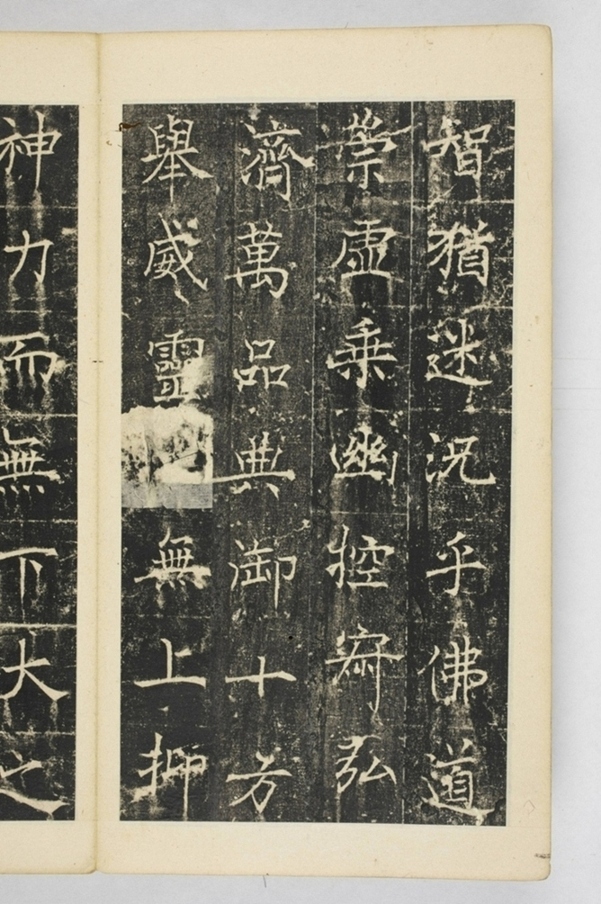 智猶迷況乎佛道
崇虛乗幽控寂弘
濟萬品典御十方
舉威靈無上抑
神力而無下大之